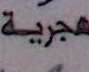 هجرية